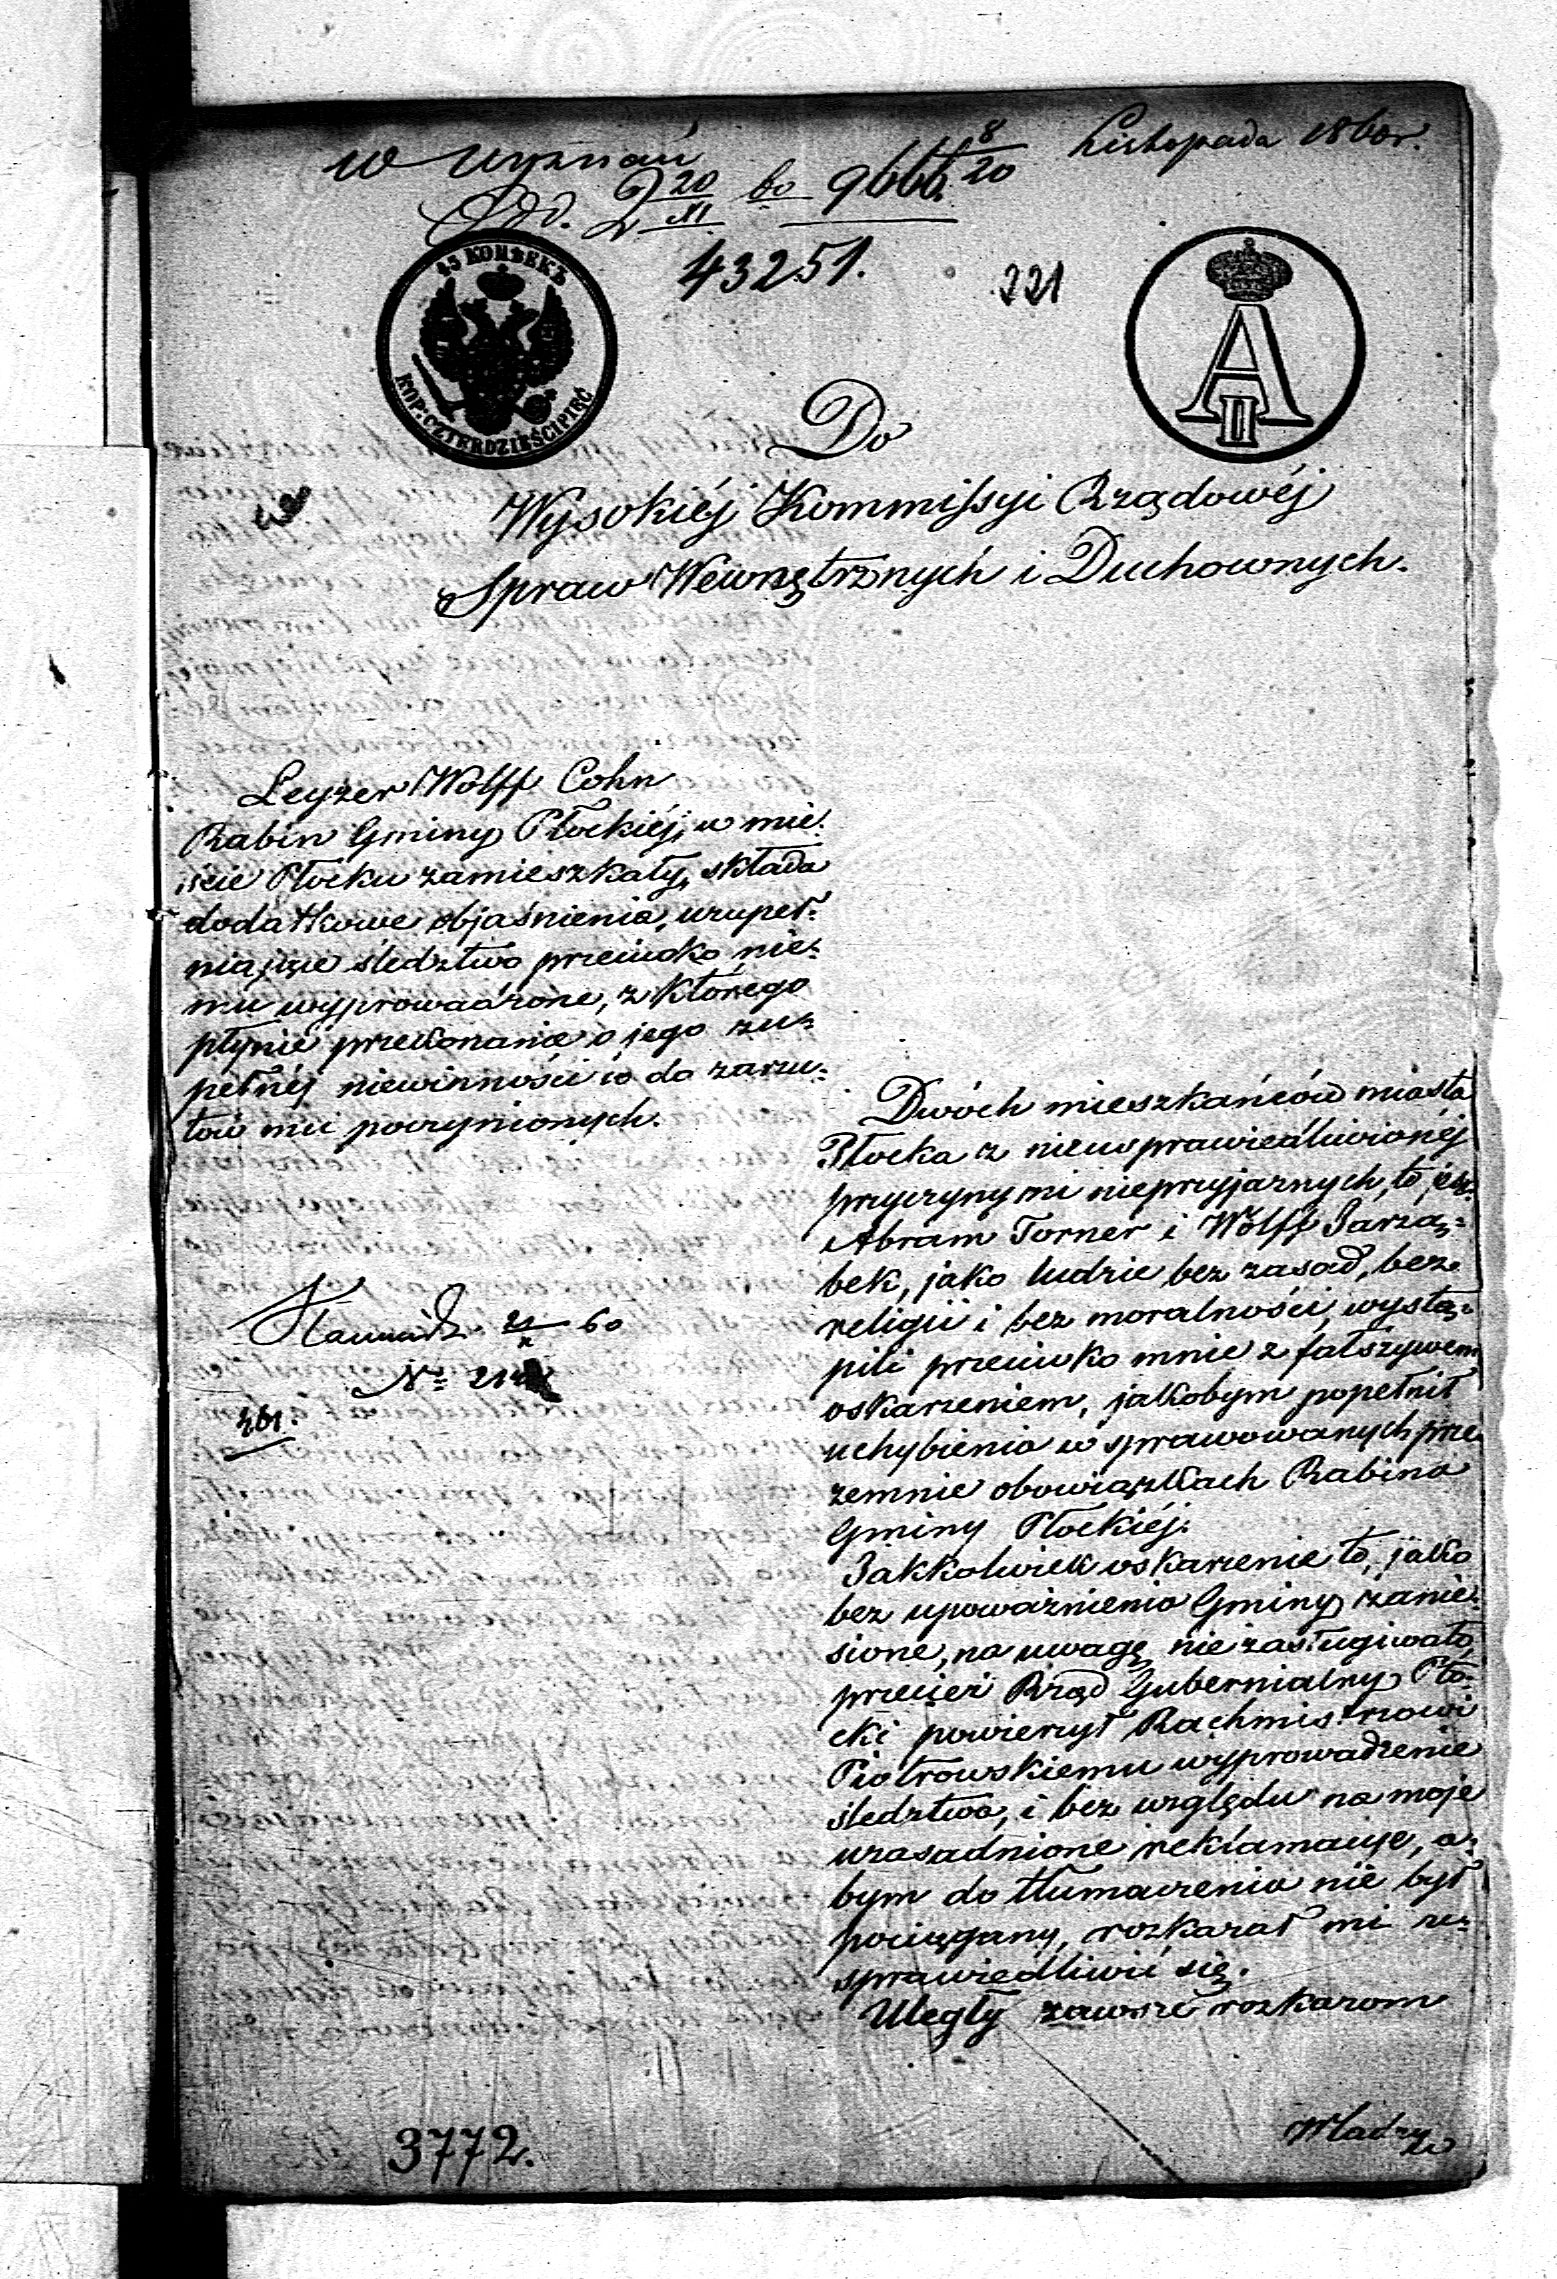 W Wyznań
8/20 Listopada 1860 r.
20/XI 60 9666.
43251.
221
45 КОПѢЕКЪ
KOP: CZTERDZIEŚCI PIĘĆ
A II
Do
Wysokiéj Kommissyi Rządowéj
Spraw Wewnętrznych i Duchownych.
Leyzer Wolff Cohn
Rabin Gminy Płockiéj, w mie=
ście Płocku zamieszkały, składa
dodatkowe objaśnienia, uzupeł=
niające śledztwo przeciwko nie=
mu wyprowadzone, z którego
płynie przekonanie o jego zu=
pełnéj niewinności co do zarzu=
tów mu poczynionych.
60
Nº
3772.
Dwóch mieszkańców miasta
Płocka z nieusprawiedliwionéj
przyczyny mi nieprzyjaznych, to jest
Abram Torner i Wolff Jarzą=
bek, jako ludzie bez zasad, bez
religii i bez moralności, wystą=
pili przeciwko mnie z fałszywem
oskarzeniem, jakobym popełnił
uchybienia w sprawowanych prze
zemnie obowiązkach Rabina
Gminy Płockiéj.
Jakkolwiek oskarzenie to, jako
bez upoważnienia Gminy zanie=
sione, na uwagę nie zasługiwało,
przecież Rząd Gubernialny Pło=
cki powierzył Rachmistrzowi
Piotrowskiemu wyprowadzenie
śledztwa, i bez względu na moje
uzasadnione reklamacye, a=
bym do tłumaczenia nie był
pociągany, rozkazał mi us=
sprawiedliwić się.
Uległy zawsze rozkazom
Władzy